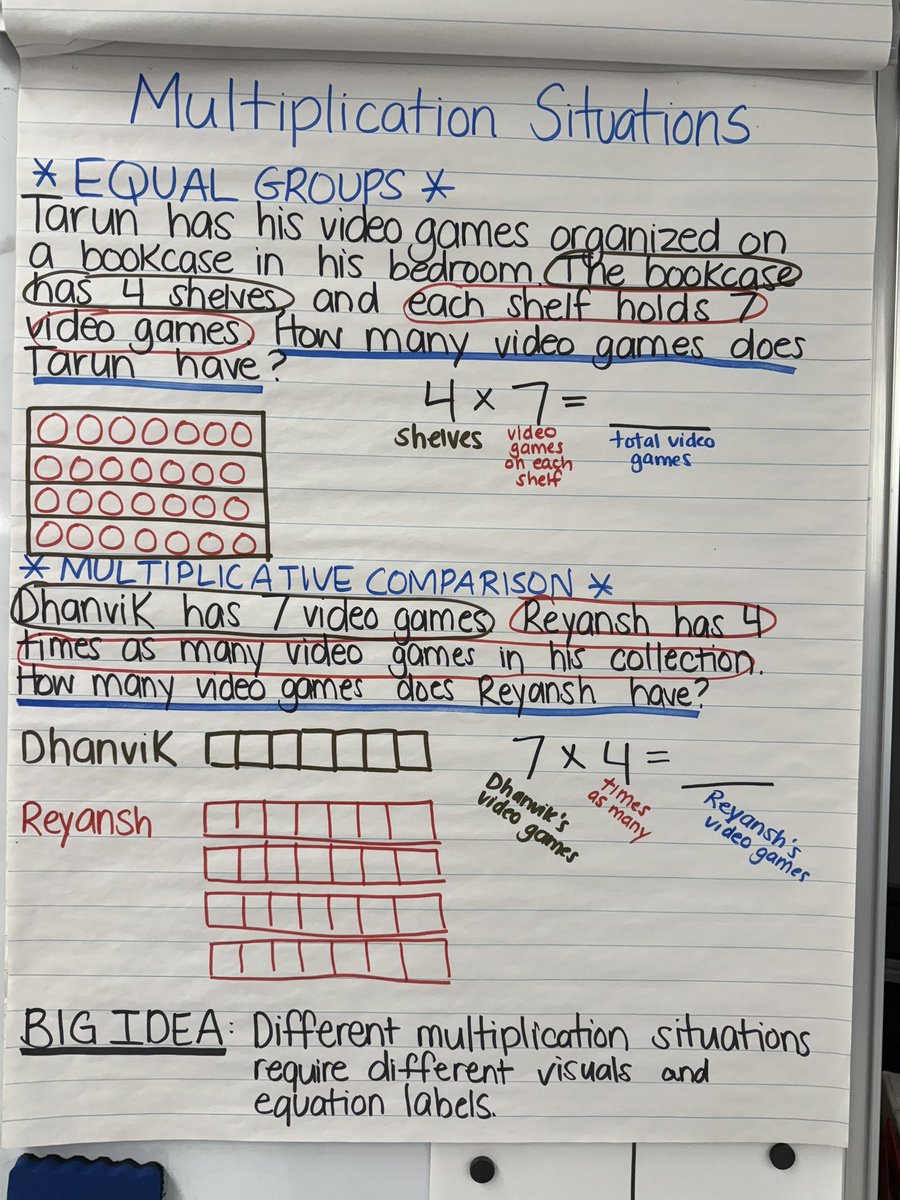 Multiplication Situations
* EQUAL GROUPS *
Tarun has his video games organized on
a bookcase in his bedroom. The bookcase
has 4 shelves and each shelf holds 7
video games. How many video games does
Tarun have?
4 × 7 = ___
shelves
video
games
on each
shelf
total video
games
* MULTIPLICATIVE COMPARISON *
Dhanvik has 7 video games. Reyansh has 4
times as many video games in his collection.
How many video games does Reyansh have?
Dhanvik
7 × 4 = ___
Dhanvik's
video games
times
as many
Reyansh's
video games
Reyansh
BIG IDEA: Different multiplication situations
require different visuals and
equation labels.